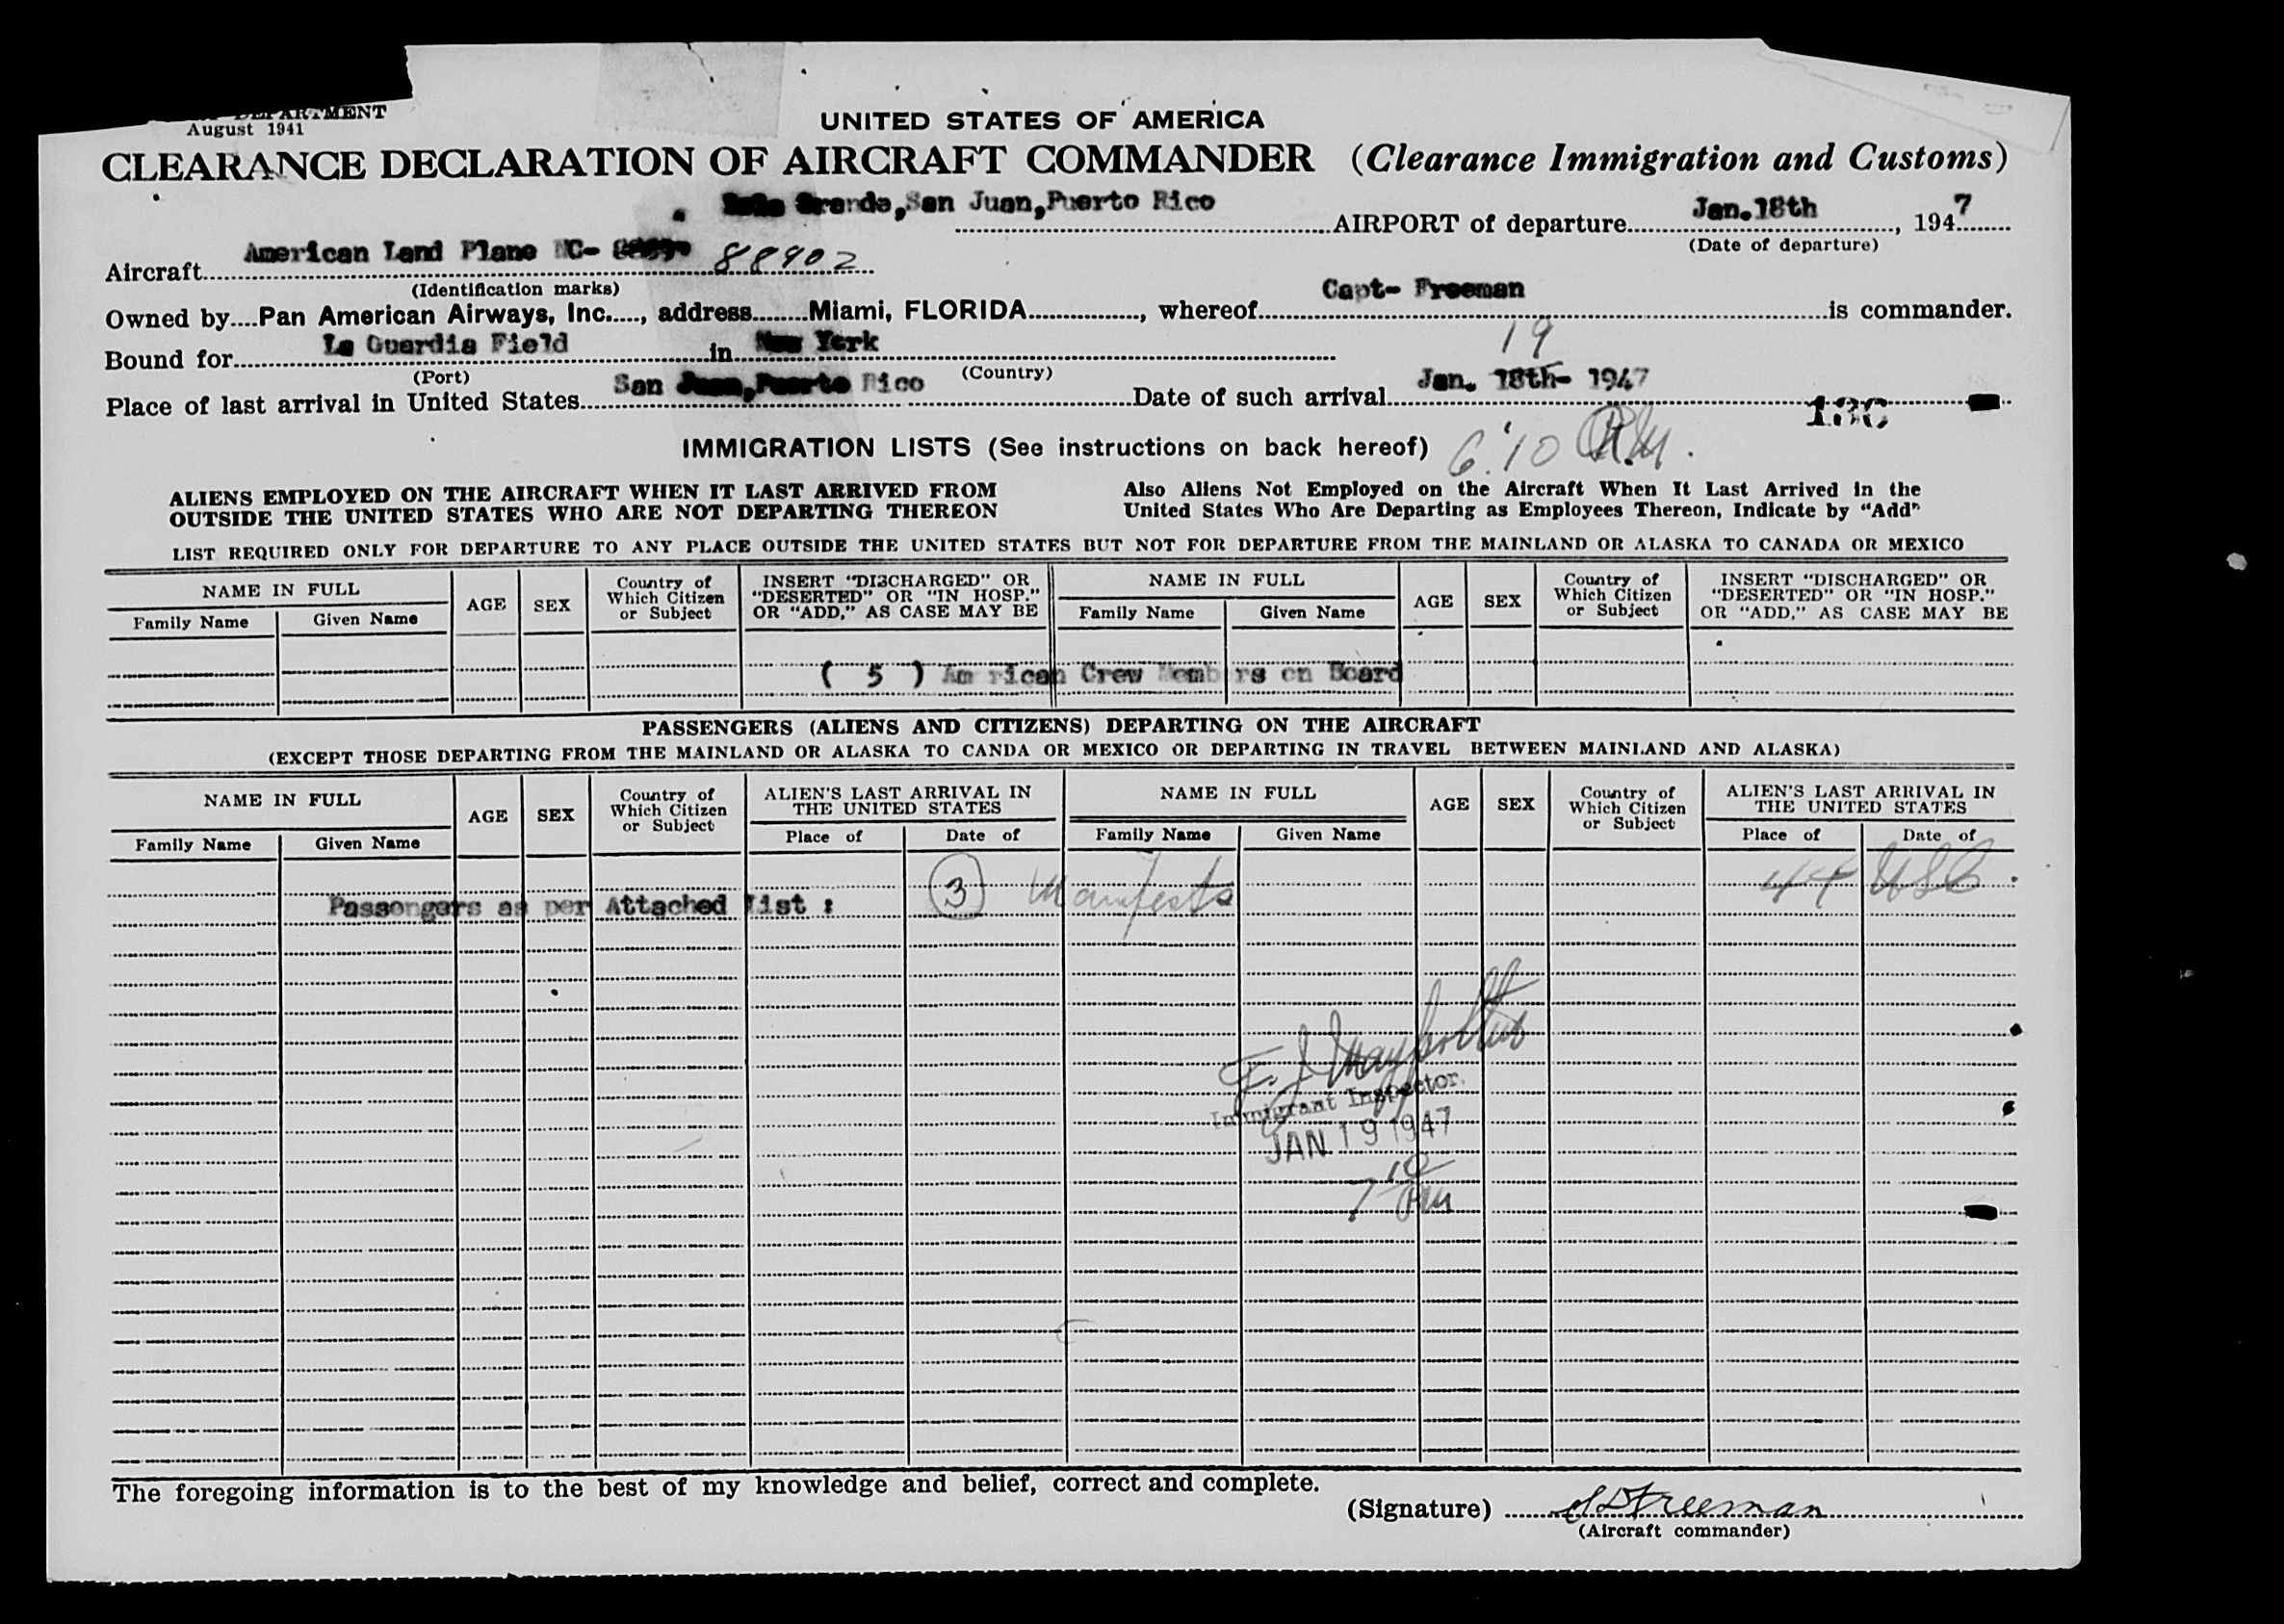 DEPARTMENT
August 1941
UNITED STATES OF AMERICA
CLEARANCE DECLARATION OF AIRCRAFT COMMANDER (Clearance Immigration and Customs)
Grande, San Juan, Puerto Rico AIRPORT of departure Jan. 18th, 1947
(Date of departure)
Aircraft American Land Plane NC- 88902
(Identification marks)
Owned by Pan American Airways, Inc., address Miami, FLORIDA, whereof Capt- Freeman is commander.
Bound for La Guardia Field in New York
19
(Port) (Country)
Place of last arrival in United States San Juan, Puerto Rico Date of such arrival Jan. 18th- 1947
IMMIGRATION LISTS (See instructions on back hereof) 6:10 P.M.
ALIENS EMPLOYED ON THE AIRCRAFT WHEN IT LAST ARRIVED FROM
OUTSIDE THE UNITED STATES WHO ARE NOT DEPARTING THEREON
Also Aliens Not Employed on the Aircraft When It Last Arrived in the
United States Who Are Departing as Employees Thereon, Indicate by "Add"
LIST REQUIRED ONLY FOR DEPARTURE TO ANY PLACE OUTSIDE THE UNITED STATES BUT NOT FOR DEPARTURE FROM THE MAINLAND OR ALASKA TO CANADA OR MEXICO
NAME IN FULL
Family Name Given Name
AGE
SEX
Country of
Which Citizen
or Subject
INSERT "DISCHARGED" OR
"DESERTED" OR "IN HOSP."
OR "ADD," AS CASE MAY BE
NAME IN FULL
Family Name Given Name
AGE
SEX
Country of
Which Citizen
or Subject
INSERT "DISCHARGED" OR
"DESERTED" OR "IN HOSP."
OR "ADD," AS CASE MAY BE
( 5 ) American Crew Members on Board
PASSENGERS (ALIENS AND CITIZENS) DEPARTING ON THE AIRCRAFT
(EXCEPT THOSE DEPARTING FROM THE MAINLAND OR ALASKA TO CANDA OR MEXICO OR DEPARTING IN TRAVEL BETWEEN MAINLAND AND ALASKA)
NAME IN FULL
Family Name Given Name
AGE
SEX
Country of
Which Citizen
or Subject
ALIEN'S LAST ARRIVAL IN
THE UNITED STATES
Place of Date of
NAME IN FULL
Family Name Given Name
AGE
SEX
Country of
Which Citizen
or Subject
ALIEN'S LAST ARRIVAL IN
THE UNITED STATES
Place of Date of
44 USC.
Passengers as per Attached List : 3 Manifests
F. J.
Immigrant Inspector
JAN 19 1947
7 10 PM
The foregoing information is to the best of my knowledge and belief, correct and complete.
(Signature) Freeman
(Aircraft commander)